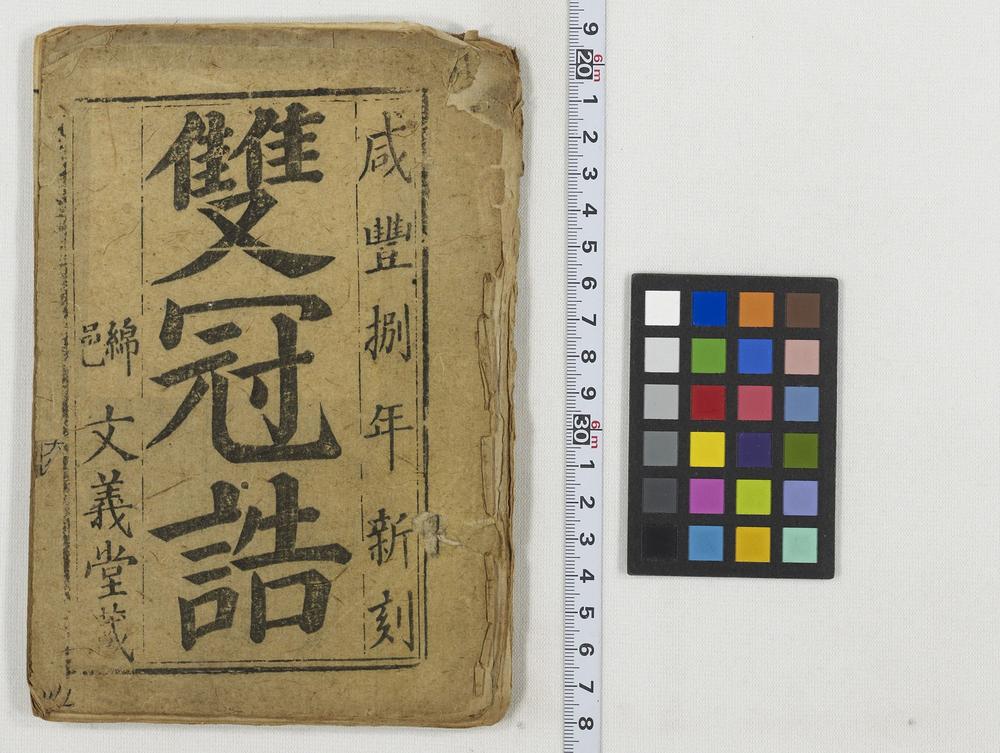 咸豐捌年新刻
雙冠誥
綿邑 文義堂藏
9
20 6m
1
2
3
4
5
6
7
8
9
30 6m
1
2
3
4
5
6
7
8